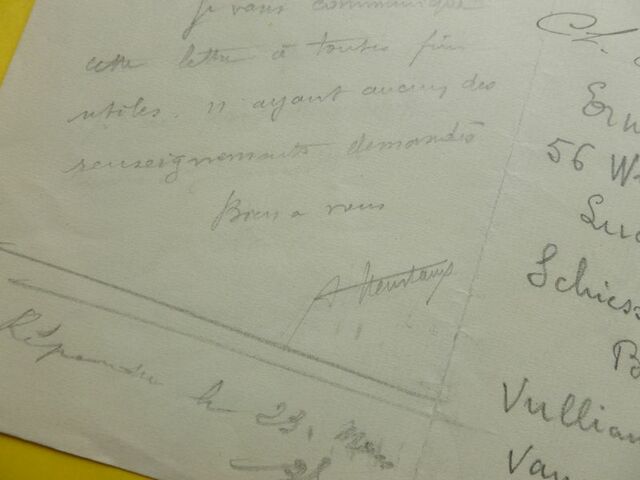 Je vous communique
cette lettre à toutes fins
utiles. n'ayant aucuns des
renseignements demandés
Bien à vous
Répondu le 23. Mars
Ern
56 W
Luc
Schiess
B
Vullian
Van